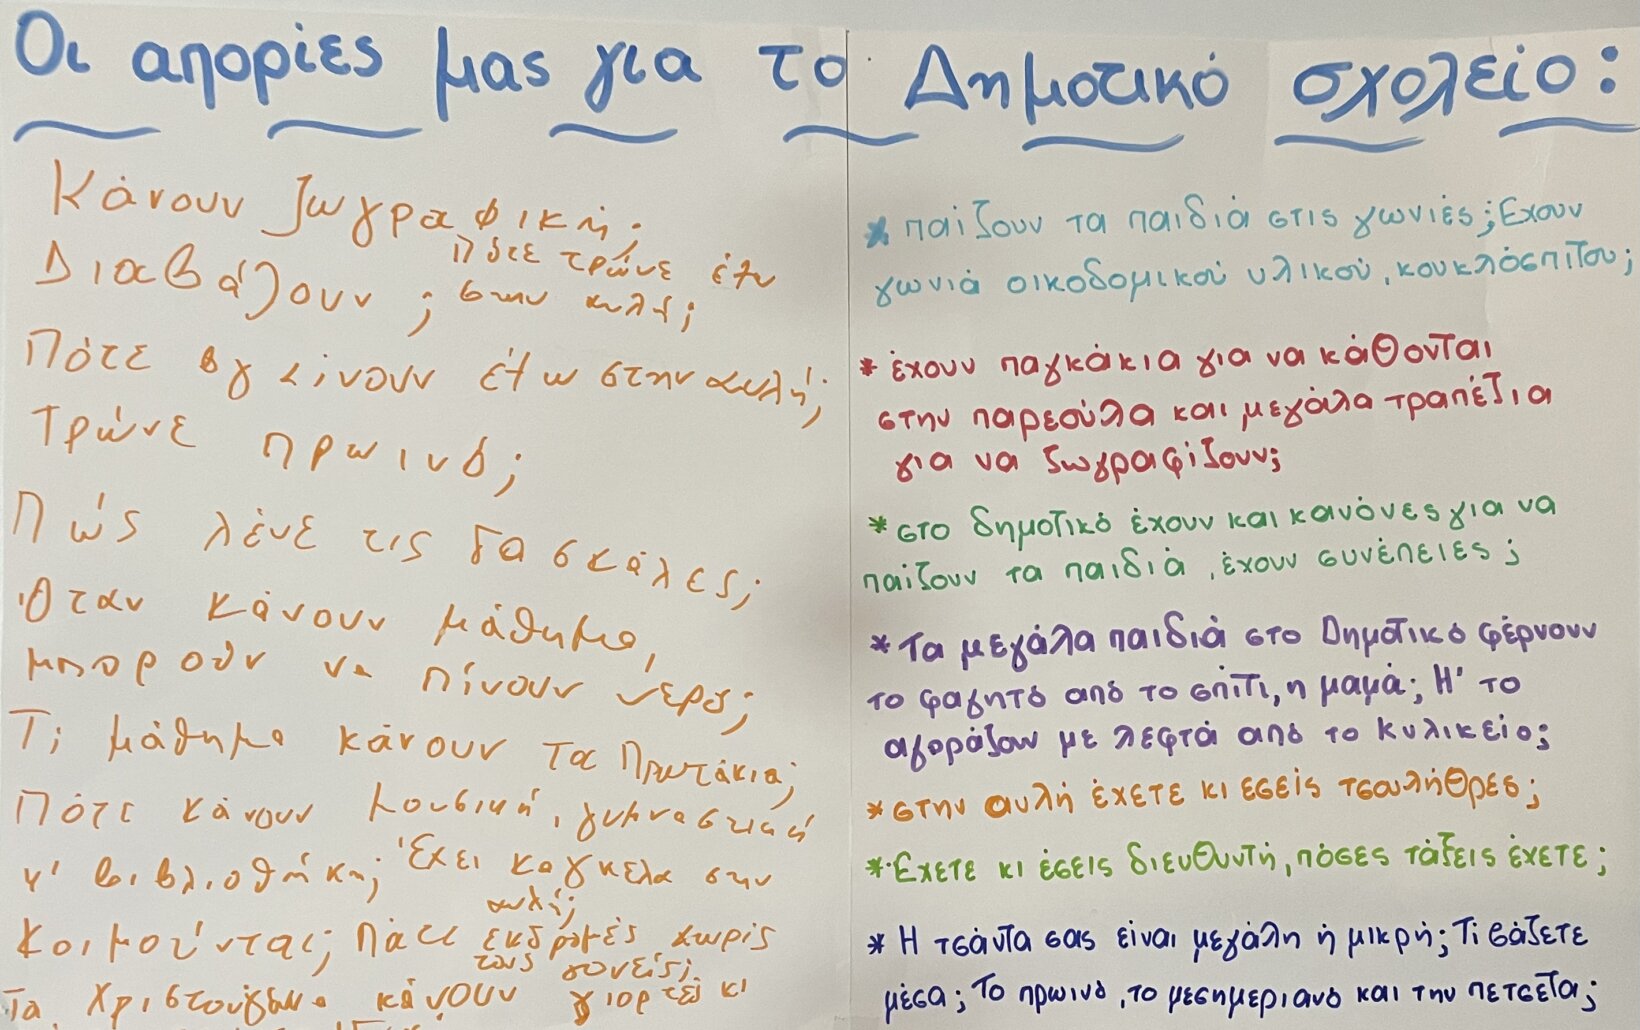 Οι απορίες μας για το Δημοτικό σχολείο:
Κάνουν ζωγραφική;
Διαβάζουν; Πότε τρώνε έξω
στην αυλή;
Πότε βγαίνουν έξω στην αυλή;
Τρώνε πρωινό;
Πώς λένε τις δασκάλες;
Όταν κάνουν μάθημα,
μπορούν να πίνουν νερό;
Τι μάθημα κάνουν τα Πρωτάκια;
Πότε κάνουν μουσική, γυμναστική
κ' βιβλιοθήκη; Έχει κάγκελα στην
αυλή;
Κοιμούνται; Πάτε εκδρομές χωρίς
τους γονείς;
Τα Χριστούγεννα κάνουν γιορτή κι
* παίζουν τα παιδιά στις γωνιές; Έχουν
γωνιά οικοδομικού υλικού, κουκλόσπιτου;
* έχουν παγκάκια για να κάθονται
στην παρεούλα και μεγάλα τραπέζια
για να ζωγραφίζουν;
* στο δημοτικό έχουν και κανόνες για να
παίζουν τα παιδιά, έχουν συνέπειες;
* Τα μεγάλα παιδιά στο Δημοτικό φέρνουν
το φαγητό από το σπίτι, η μαμά; Η' το
αγοράζουν με λεφτά από το κυλικείο;
* στην αυλή έχετε κι εσείς τσουλήθρες;
* Έχετε κι έσεις διευθυντή, πόσες τάξεις έχετε;
* Η τσάντα σας είναι μεγάλη ή μικρή; Τι βάζετε
μέσα; Το πρωινό, το μεσημεριανό και την πετσέτα;